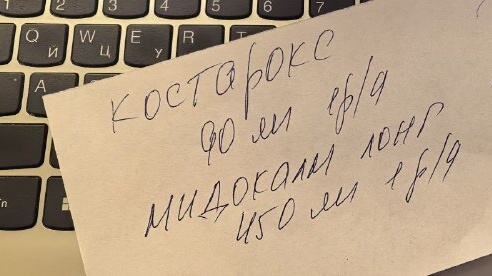 2
3
4
Q Й
W Ц
E У
R
T
A
КОСТАРОКС
90 мг 1р/д
МИДОКАЛМ ЛОНГ
450 мг 1р/д